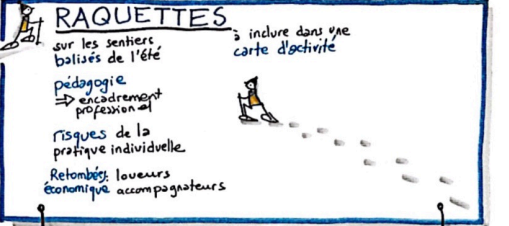 RAQUETTES
sur les sentiers
balisés de l'été
pédagogie
⇒ encadrement
professionnel
risques de la
pratique individuelle
Retombées: loueurs
économique accompagnateurs
à inclure dans une
carte d'activité